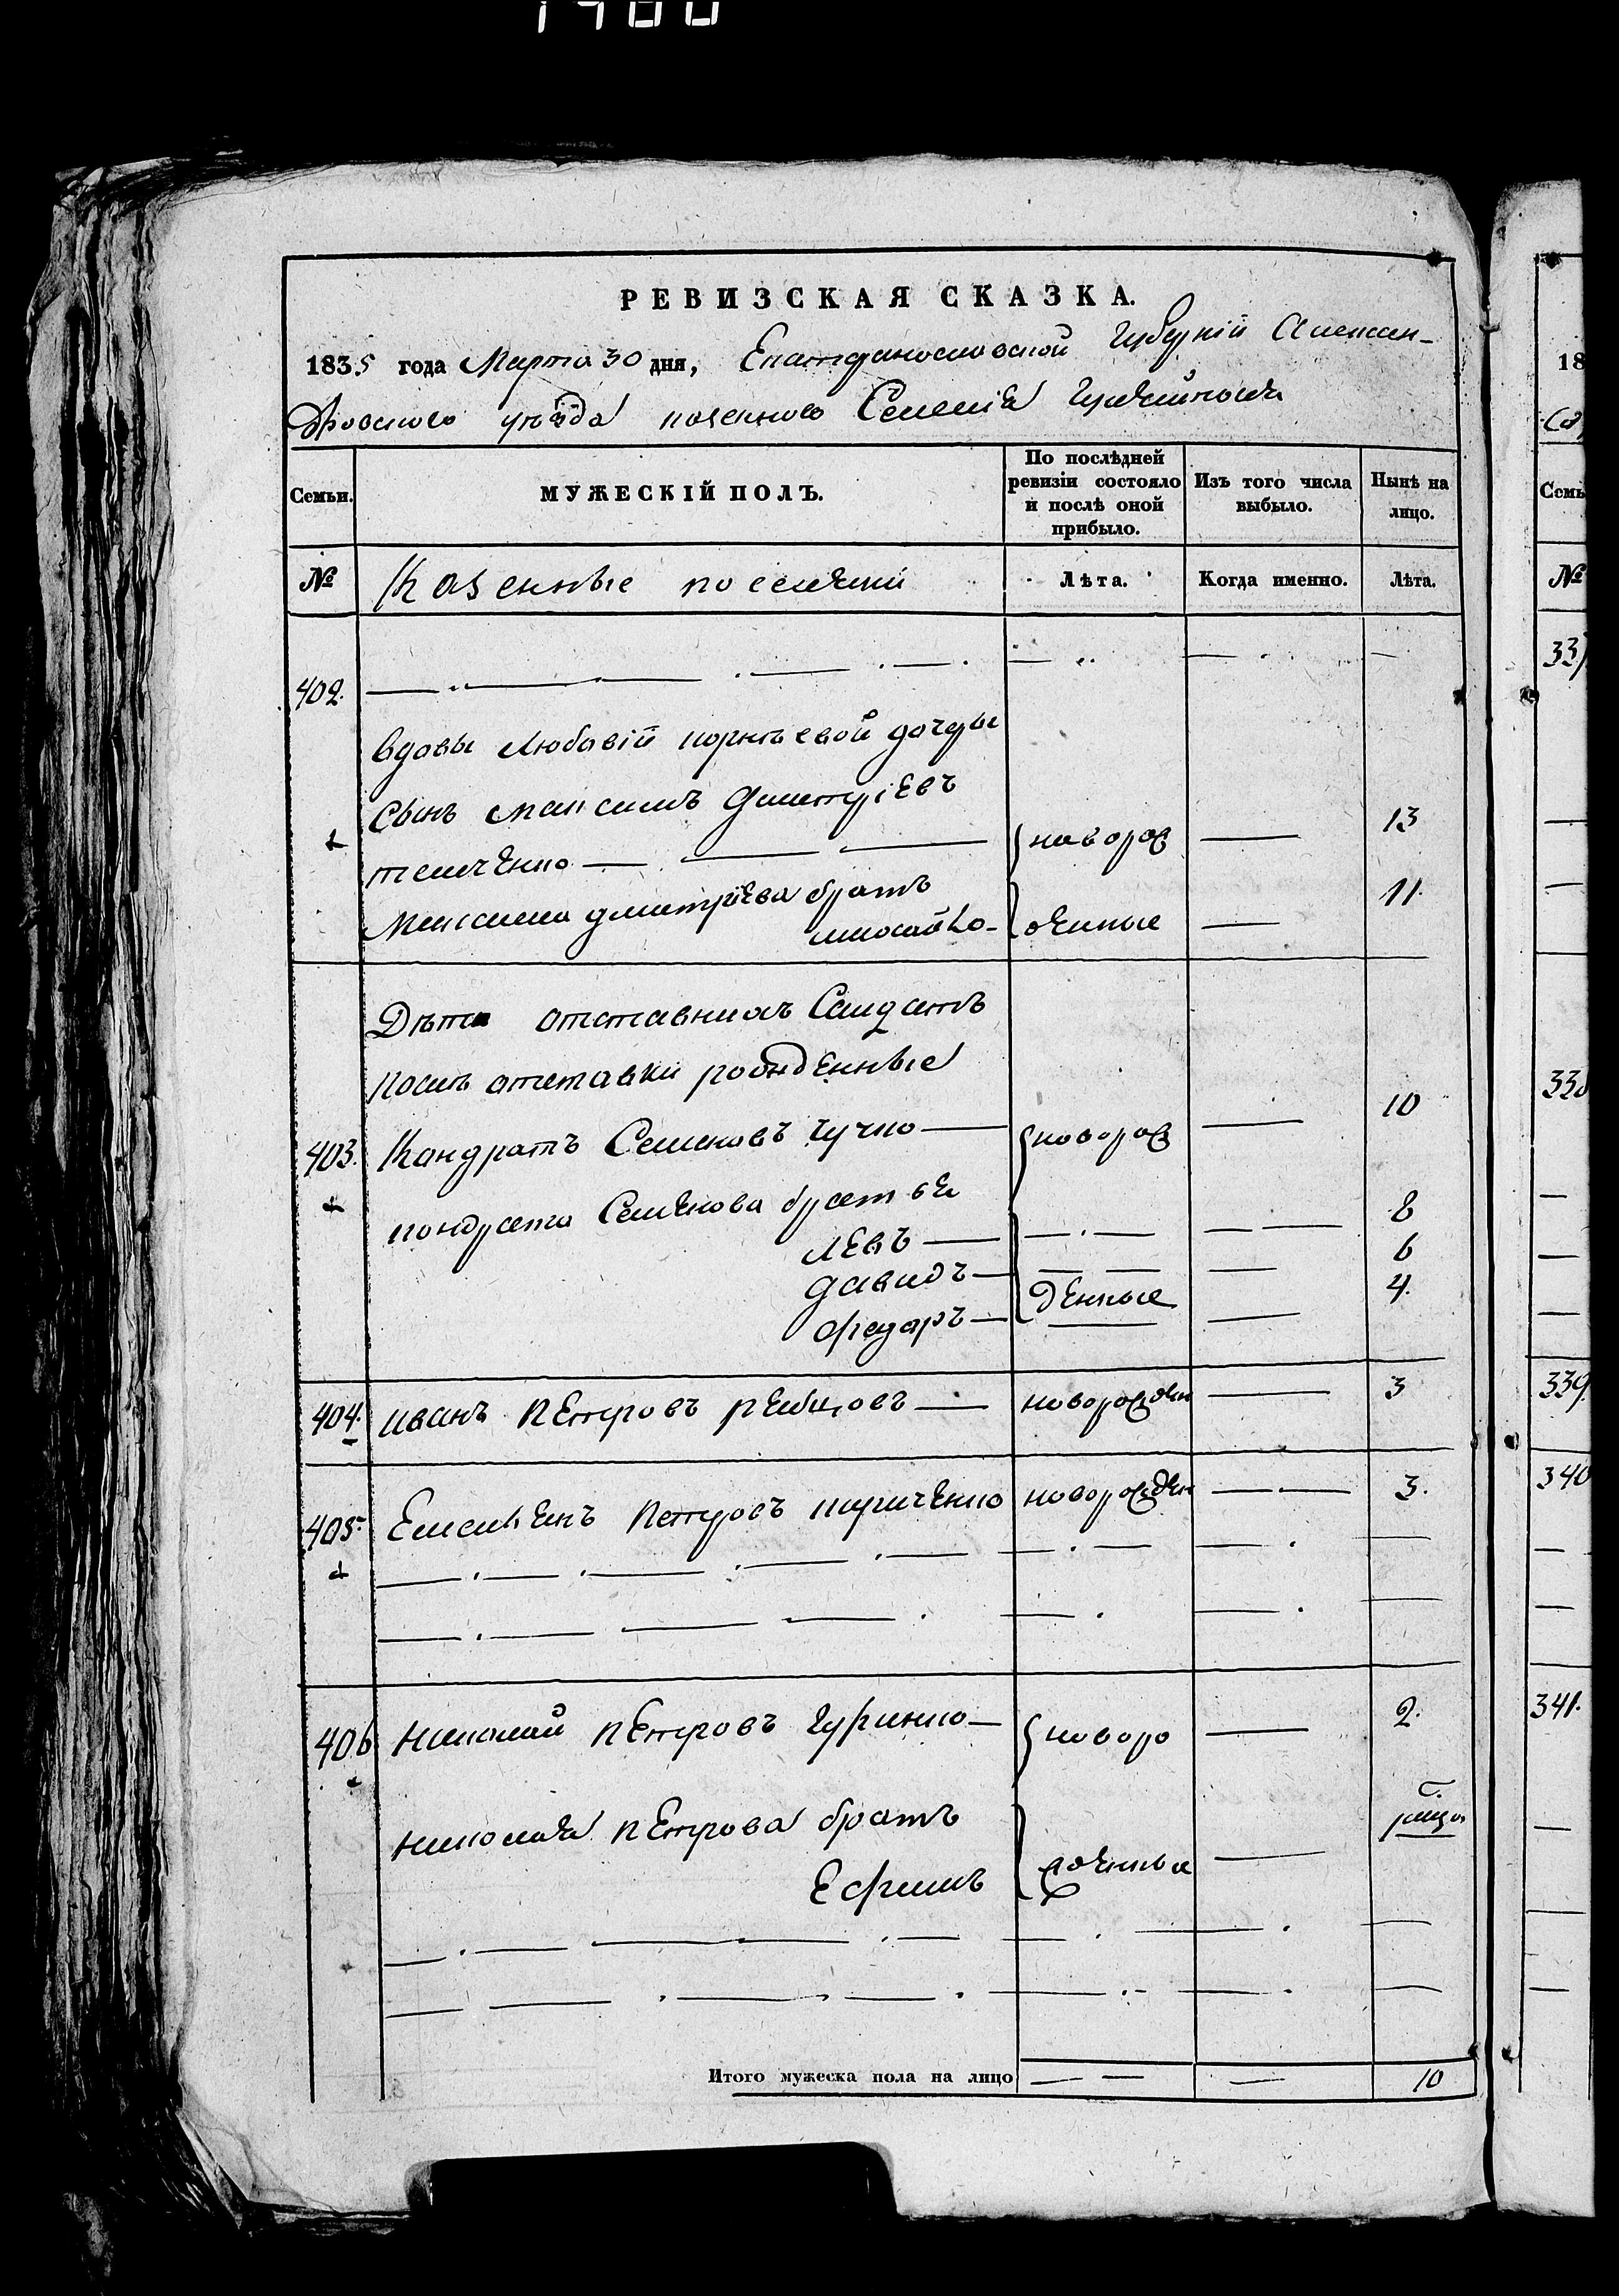 РЕВИЗСКАЯ СКАЗКА.
1835 года Марта 30 дня, Екатериносло­вской Губернiи Алексан-
дровского уѣзда казенного Селенiя
Семьи.
МУЖЕСКІЙ ПОЛЪ.
По послѣдней ревизіи состояло и послѣ оной прибыло.
Изъ того числа выбыло.
Нынѣ на лицо.
№ Казенные поселяни Лѣта. Когда именно. Лѣта.
402.
вдовы Любовiй корнѣевой дочеры
Сынъ максимъ дмитрiевъ
темченко новорож 13
Максима дмитрiева братъ 11.
михайло денные
Дѣти отставныхъ Салдатъ
послѣ отставки рожденные
403. Кандратъ Семеновъ Гучко новорож 10
кондрата Семенова братья
левъ 8
давидъ 6
федаръ денные 4.
404. иванъ петровъ новорожден 3
405 Емельянъ Петровъ новорожден 3.
406 николай петровъ Гуринко новоро 2.
николая петрова братъ
Ефимъ жденные
Итого мужеска пола на лицо 10
18
Семь
№
337
338
339.
340
341.